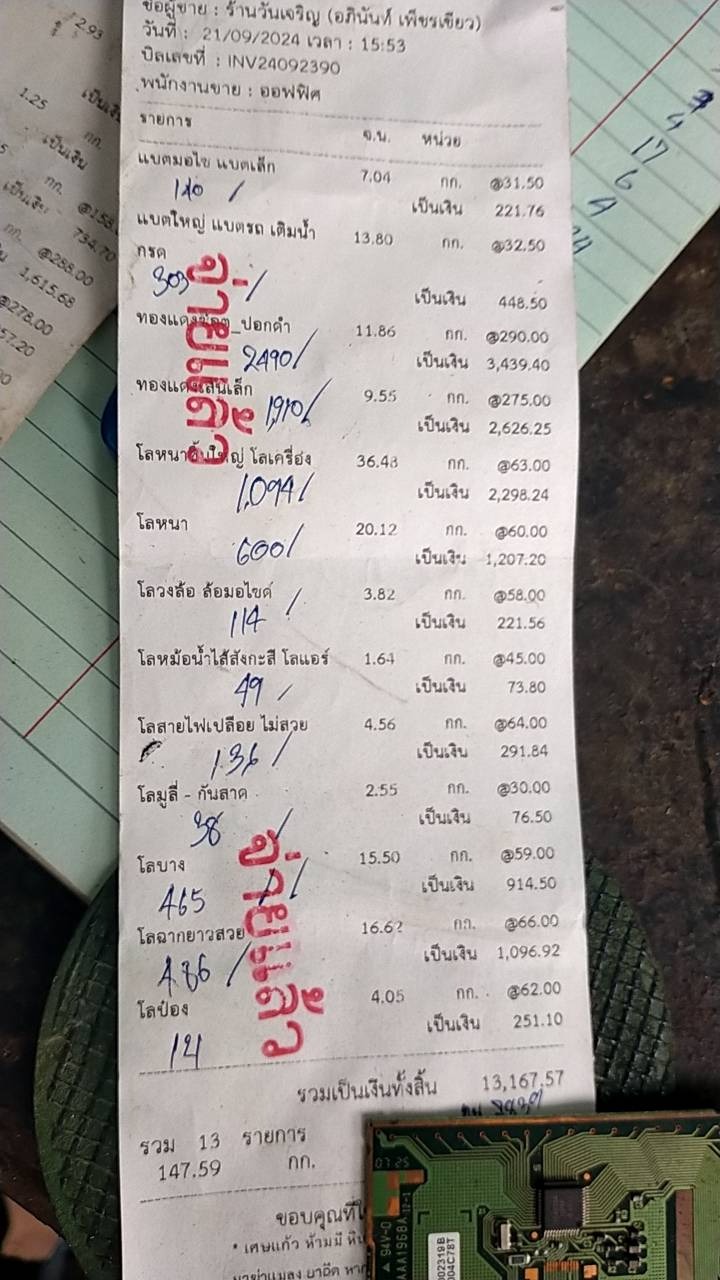 ชื่อผู้ขาย : ร้านวันเจริญ (อภินันท์ เพ็ชรเขียว)
วันที่ : 21/09/2024 เวลา : 15:53
บิลเลขที่ : INV24092390
พนักงานขาย : ออฟฟิศ
รายการ จ.น. หน่วย
แบตมอไซ แบตเล็ก 7.04 กก. @31.50
เป็นเงิน 221.76
แบตใหญ่ แบตรถ เติมน้ำ 13.80 กก. @32.50
กรด
303
เป็นเงิน 448.50
ทองแดงช็อต_ปอกดำ 11.86 กก. @290.00
2490
เป็นเงิน 3,439.40
ทองแดงเส้นเล็ก 9.55 กก. @275.00
1910
เป็นเงิน 2,626.25
โลหนาชิ้นใหญ่ โลเครื่อง 36.48 กก. @63.00
1,094
เป็นเงิน 2,298.24
โลหนา 20.12 กก. @60.00
600
เป็นเงิน 1,207.20
โลวงล้อ ล้อมอไซด์ 3.82 กก. @58.00
114
เป็นเงิน 221.56
โลหม้อน้ำไส้สังกะสี โลแอร์ 1.64 กก. @45.00
49
เป็นเงิน 73.80
โลสายไฟเปลือย ไม่สวย 4.56 กก. @64.00
136
เป็นเงิน 291.84
โลมูลี่ - กันสาด 2.55 กก. @30.00
38
เป็นเงิน 76.50
โลบาง 15.50 กก. @59.00
465
เป็นเงิน 914.50
โลฉากยาวสวย 16.62 กก. @66.00
486
เป็นเงิน 1,096.92
โลป๋อง 4.05 กก. @62.00
เป็นเงิน 251.10
รวมเป็นเงินทั้งสิ้น 13,167.57
รวม 13 รายการ
147.59 กก.
จ่ายแล้ว
จ่ายแล้ว
ขอบคุณที่
* เศษแก้ว ห้ามมี
2.93
1.25 กก.
เป็นเงิน
กก.
เป็นเงิน 734.70
กก. @288.00
1,615.68
@278.00
57.20
17
6
07 25
94V-0